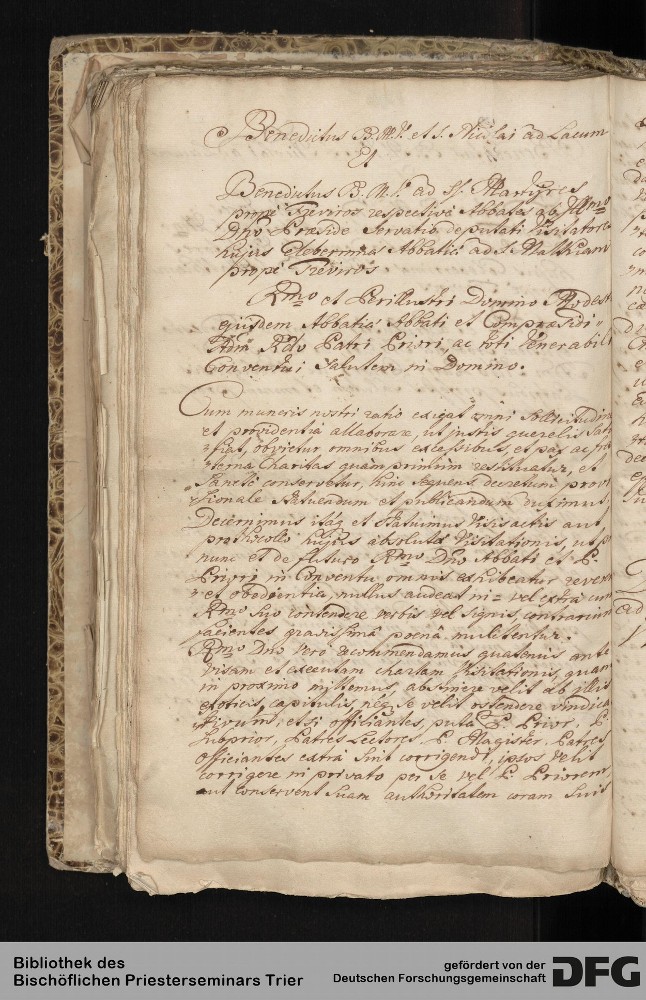 Benedictus B. M. V. et S. Nicolai ad Lacum
Et
Benedictus B. M. V. ad SS. Martyres
prope Treviros respective Abbates ab Illmo
Dno Praeside Servatio deputati Visitatores
hujus Celeberrimae Abbatiae ad S. Mathiam
prope Treviros.
Rmo et Perillustri Domino Modest
ejusdem Abbatiae Abbati et Compraesidi
Adm Rdo Patri Priori, ac toti Venerabili
Conventui Salutem in Domino.
Cum muneris nostri ratio exigat omni Sollicitudin
et providentia allaborare, ut justis querelis Sati
fiat, obvietur omnibus excessibus, et pax ac fra
terna Charitas quam primum restituatur, et
Sancte conservetur, hinc sequens decretum provi
sionale statuendum et publicandum duximus,
Decernimus itaq et statuimus visis actis aut
prothocollo hujus absolutae Visitationis, ut
nunc et de futuro Rmo Dno Abbati et P.
Priori in Conventu omnis exhibeatur reveren
et obedientia, nullus audeat in= vel extra cum
Rmo suo contendere verbis vel signis, contrarium
facientes gravissima poena mulctentur.
Rmo Dno vero recommendamus quatenus ante
visam et executam chartam Visitationis, quam
in proximo mittemus, abstinere velit ab illis
exoticis capitulis, neq se velit ostendere vindica
tivum, etsi officiantes, puta P. Prior, P.
Subprior, Patres Lectores, P. Magister, Patres
officiantes extra sint corrigendi, ipsos velit
corrigere in privato per se vel P. Priorem,
ut conservent suam authoritatem coram suis
Bibliothek des
Bischöflichen Priesterseminars Trier
gefördert von der
Deutschen Forschungsgemeinschaft
DFG